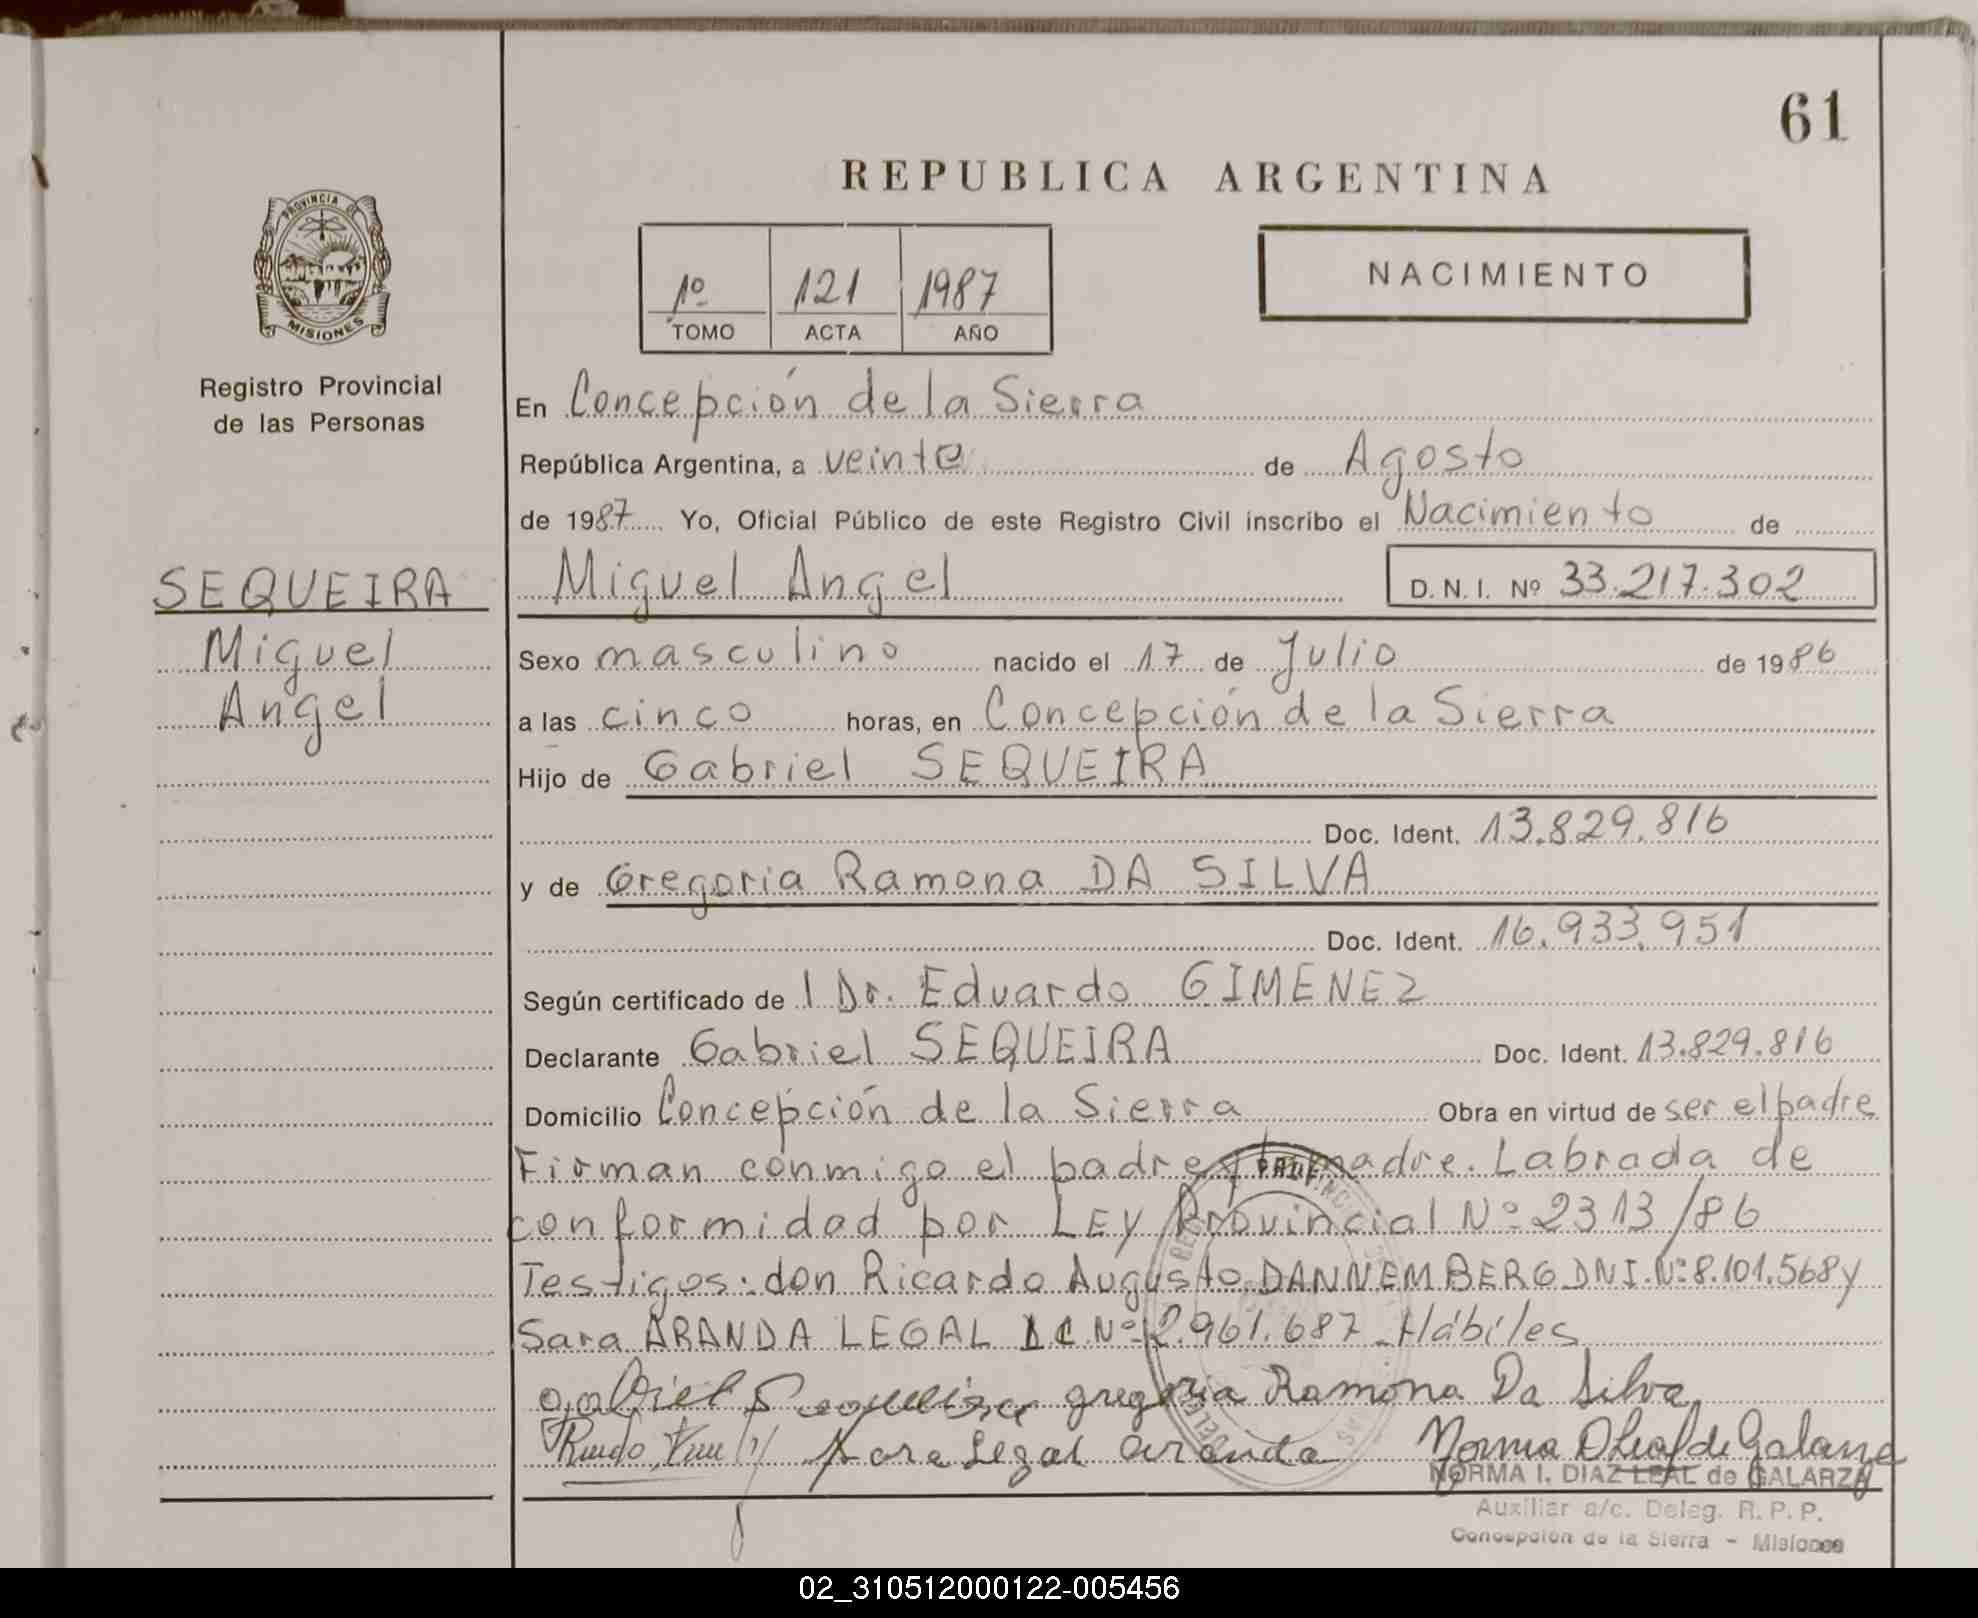 61
REPUBLICA ARGENTINA
PROVINCIA DE
MISIONES
Registro Provincial
de las Personas
1º 121 1987
TOMO ACTA AÑO
NACIMIENTO
En Concepción de la Sierra
República Argentina, a veinte de Agosto
de 1987 Yo, Oficial Público de este Registro Civil inscribo el Nacimiento de
SEQUEIRA
Miguel
Angel
Miguel Angel D. N. I. Nº 33.217.302
Sexo masculino nacido el 17 de Julio de 1986
a las cinco horas, en Concepción de la Sierra
Hijo de Gabriel SEQUEIRA
Doc. Ident. 13.829.816
y de Gregoria Ramona DA SILVA
Doc. Ident. 16.933.951
Según certificado de l Dr. Eduardo GIMENEZ
Declarante Gabriel SEQUEIRA Doc. Ident. 13.829.816
Domicilio Concepción de la Sierra Obra en virtud de ser el padre
Firman conmigo el padre y la madre. Labrada de
conformidad por LEY Provincial Nº 2313/86
Testigos: don Ricardo Augusto DANNEMBERG DNI. Nº 8.101.568 y
Sara ARANDA LEGAL L.C. Nº 2.961.687 - Hábiles
gabriel Sequeira gregoria Ramona Da Silva
Sara Legal Aranda Norma D Leal de Galarza
NORMA I. DIAZ LEAL de GALARZA
Auxiliar a/c. Deleg. R. P. P.
Concepción de la Sierra - Misiones
02_310512000122-005456